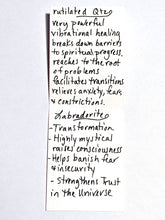 rutilated Qtz
very powerful
vibrational healing
breaks down barriers
to spiritual progress,
reaches to the root
of problems
facilitates transitions
relieves anxiety, fears
& constrictions.
Labradorite
- Transformation
- Highly mystical
raises consciousness
- Helps banish fear
& insecurity
- Strengthens Trust
in the Universe